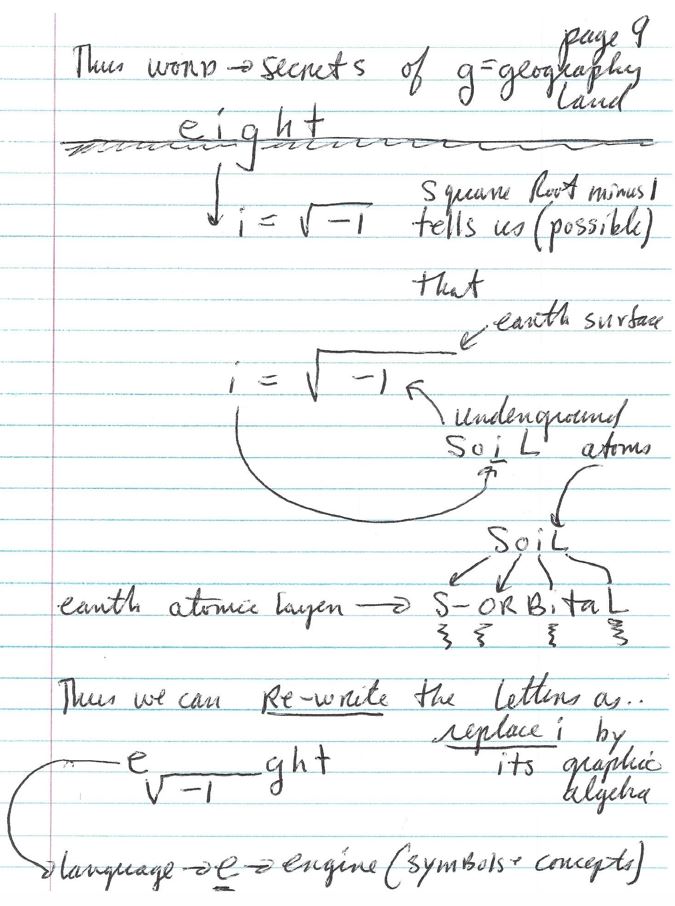 page 9
Thus word → secrets of g=geography
land
eight
i = √-1 square Root minus 1
tells us (possible)
that
earth surface
i = √-1
underground
SoiL atoms
SoiL
earth atomic layer → S-ORBitaL
Thus we can Re-write the letters as..
replace i by
e √-1 ght its graphic
algebra
language → e → engine (symbols + concepts)